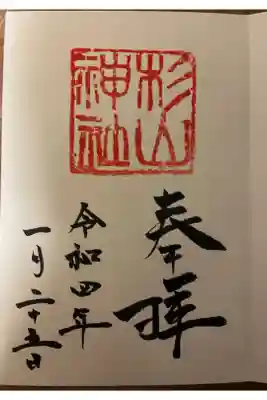 杉山神社
奉拝
令和四年
一月二十五日